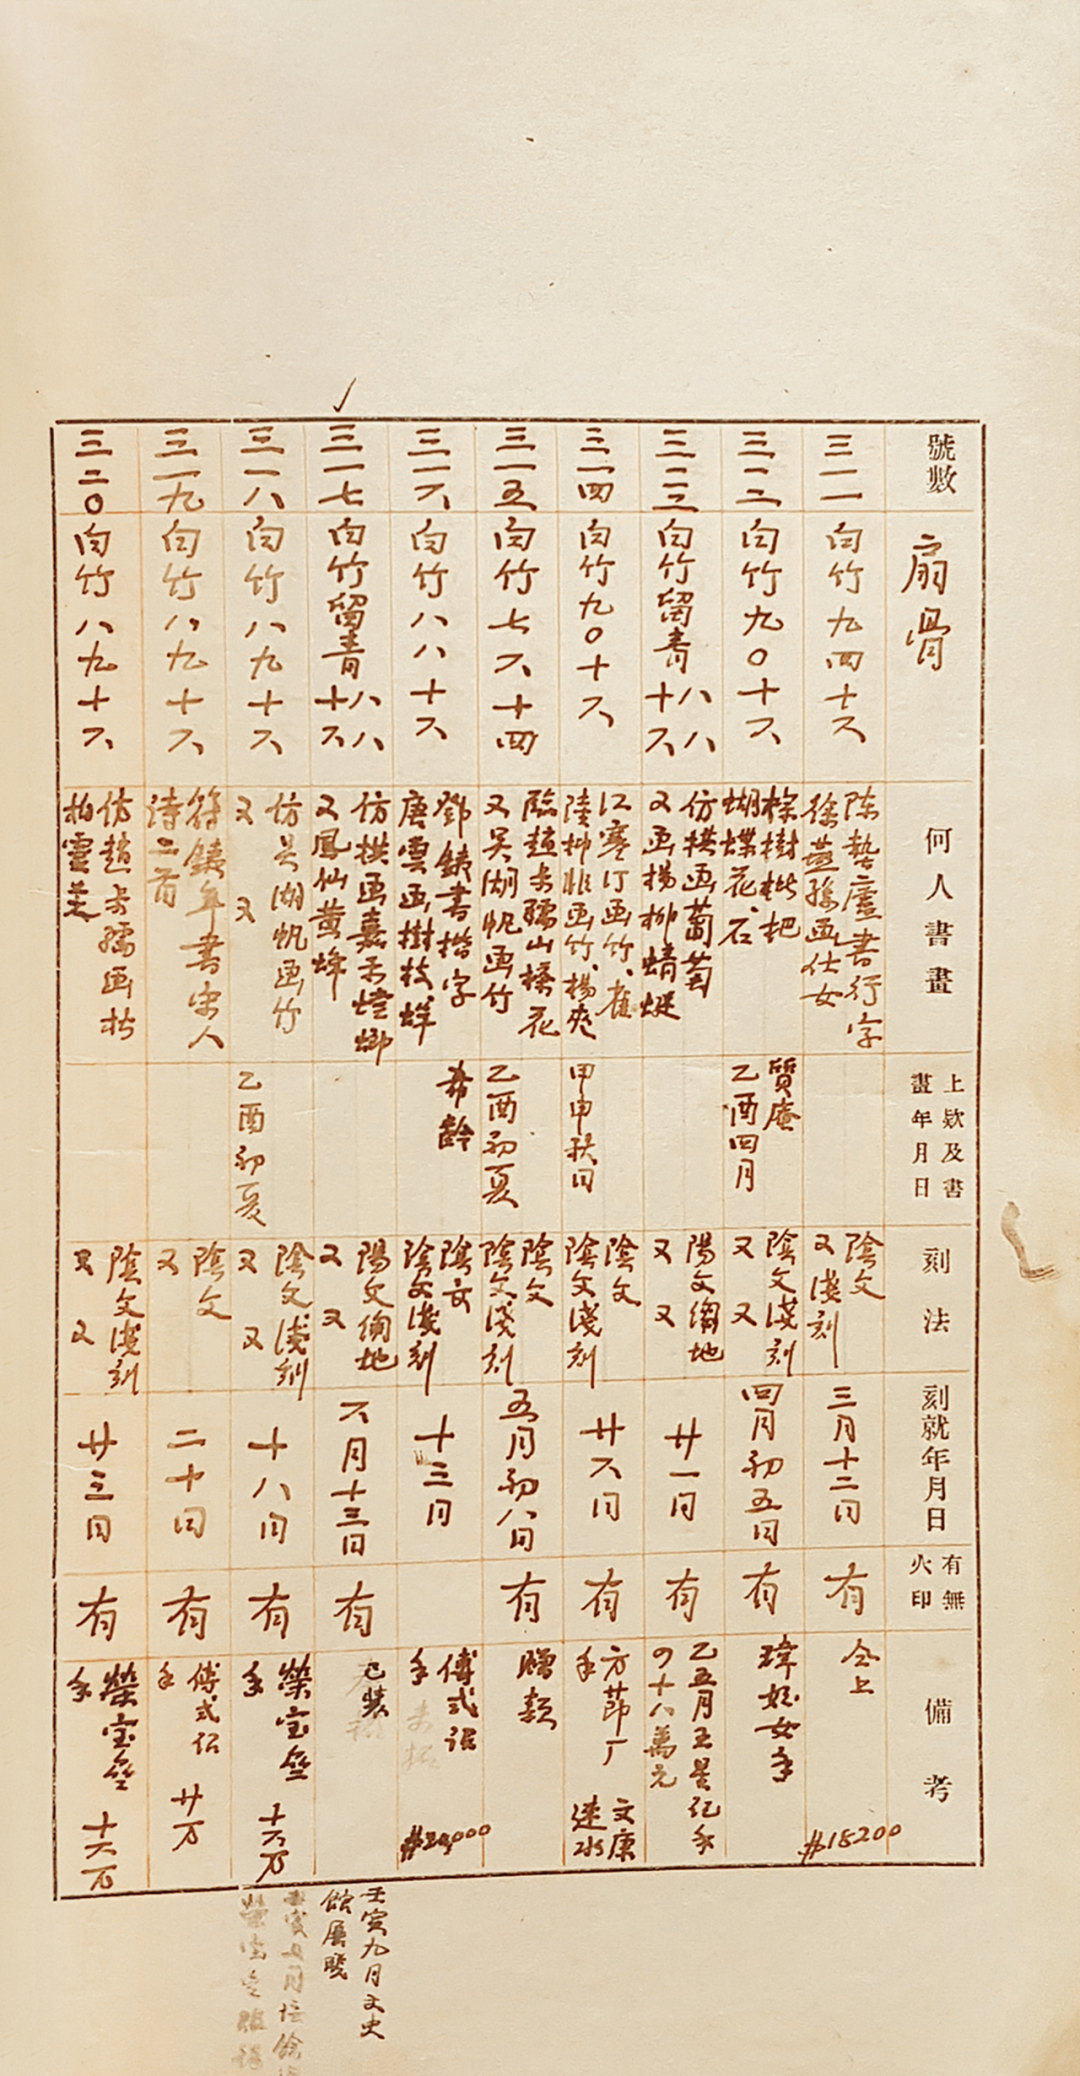 號數
扇骨
何人書畫
上欵及書
畫年月日
刻法
刻就年月日
有無
火印
備考
三一一
白竹九四十六
陈蟄廬書行字
徐燕孫画仕女
陰文
又淺刻
三月十二日
有
仝上
#18200
三一二
白竹九〇十六
棕樹枇杷
蝴蝶花、石
質庵
乙酉四月
陰文淺刻
又 又
四月初五日
有
瑋姪女手
三一三
白竹留青
八八
十六
仿拱画葡萄
又画楊柳蜻蜓
陽文
又 又
廿一日
有
乙五月五星紀手
四十八萬元
三一四
白竹九〇十六
江寒汀画竹、雀
陸抑非画竹、楊爽
甲申秋日
陰文
陰文淺刻
廿六日
有
方茆厂
手
文康
速水
三一五
白竹七六十四
臨趙步孺山橘花
又吴湖帆画竹
乙酉初夏
陰文
陰文淺刻
五月初八日
有
贈款
三一六
白竹八八十六
鄧鉄書楷字
唐雲画樹枝、蜂
希齡
陰文
陰文淺刻
十三日
傅式詒
手
#20,000
✓
三一七
白竹留青
八八
十六
仿拱画嘉禾螳螂
又鳳仙黄蜂
陽文地
又 又
六月十三日
有
已裝
壬寅九月文史
館展覧
三一八
白竹八九十六
仿吴湖帆画竹
又 又
乙酉初夏
陰文淺刻
又 又
十八日
有
榮宝斋
手
十六万
三一九
白竹八九十六
符鉄年書宋人
詩二首
陰文
又
二十日
有
傅式佋
手
廿万
三二〇
白竹八九十六
仿趙步孺画松
柏靈芝
陰文淺刻
又 又
廿三日
有
榮宝斋
手
十六万